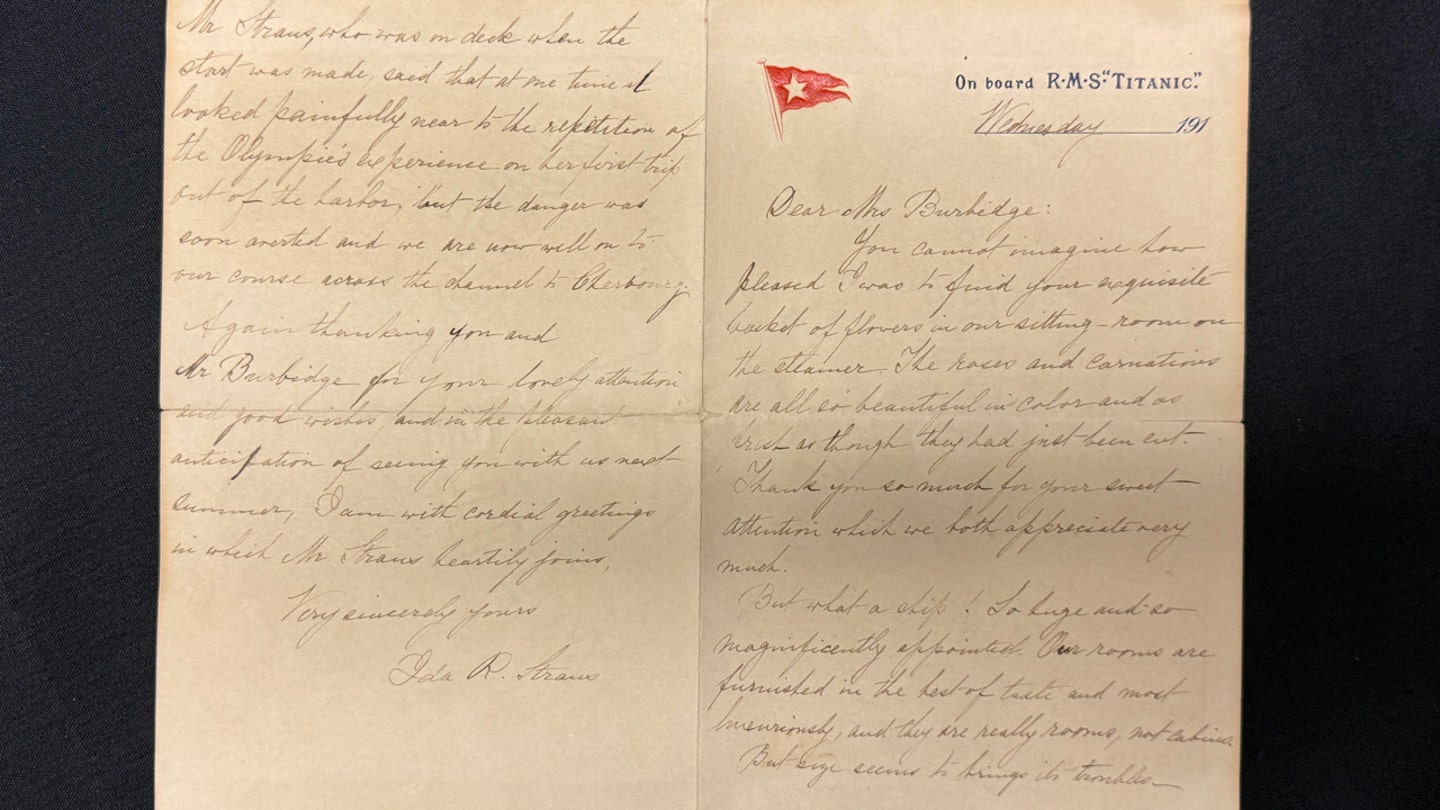 On board R·M·S·"TITANIC".
Wednesday 191
Dear Mrs Burbidge:
You cannot imagine how
pleased I was to find your exquisite
basket of flowers in our sitting-room on
the steamer. The roses and carnations
are all so beautiful in color and as
fresh as though they had just been cut.
Thank you so much for your sweet
attention which we both appreciate very
much.
But what a ship! So huge and so
magnificently appointed. Our rooms are
furnished in the best of taste and most
luxuriously, and they are really rooms, not cabins.
But size seems to brings its troubles—
Mr Straus, who was on deck when the
start was made, said that at one time it
looked painfully near to the repetition of
the Olympic's experience on her first trip
out of the harbor, but the danger was
soon averted and we are now well on to
our course across the channel to Cherbourg.
Again thanking you and
Mr Burbidge for your lovely attention
and good wishes, and in the pleasant
anticipation of seeing you with us next
summer, I am with cordial greetings
in which Mr Straus heartily joins,
Very sincerely yours
Ida R. Straus